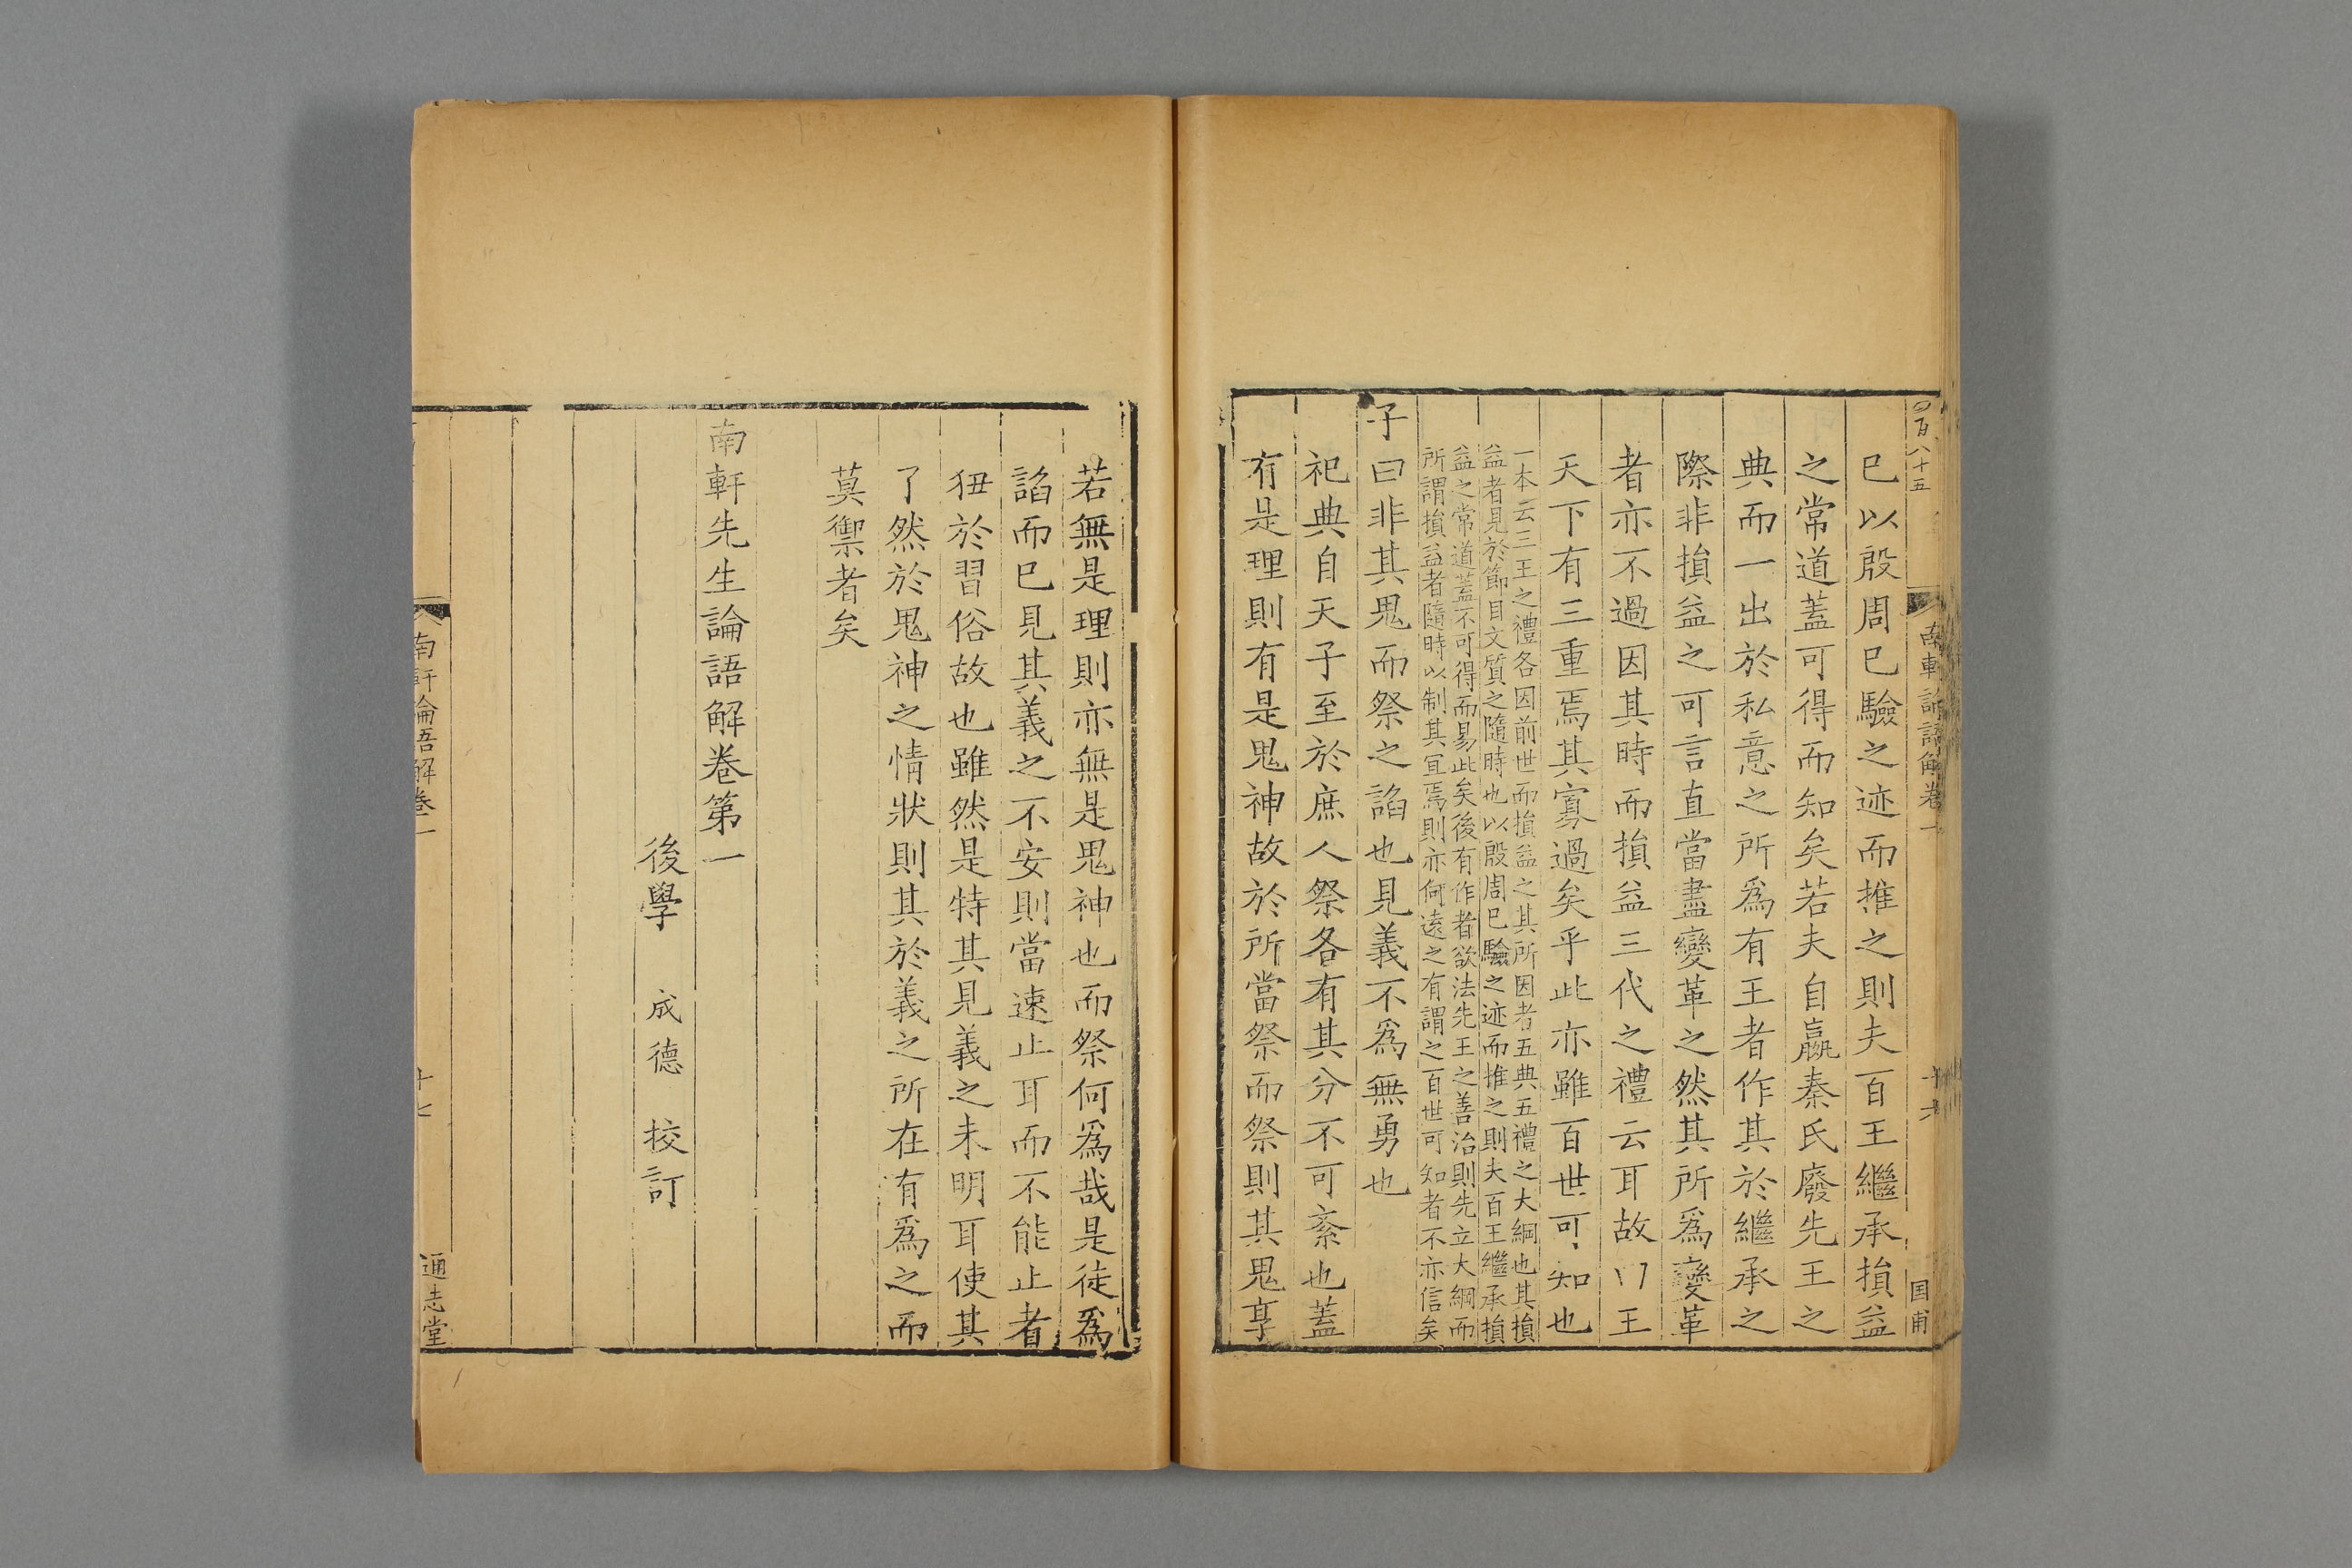 四百八十五
南軒論語解卷一
十六
国甫
已以殷周已驗之迹而推之則夫百王繼承損益
之常道蓋可得而知矣若夫自嬴秦氏廢先王之
典而一出於私意之所爲有王者作其於繼承之
際非損益之可言直當盡變革之然其所爲變革
者亦不過因其時而損益三代之禮云耳故曰王
天下有三重焉其寡過矣乎此亦雖百世可知也
一本云三王之禮各因前世而損益之其所因者五典五禮之大綱也其損
益者見於節目文質之隨時也以殷周已驗之迹而推之則夫百王繼承損
益之常道蓋不可得而易此矣後有作者欲法先王之善治則先立大綱而
所謂損益者隨時以制其宜焉則亦何遠之有謂之百世可知者不亦信矣
子曰非其鬼而祭之諂也見義不爲無勇也
祀典自天子至於庶人祭各有其分不可紊也蓋
有是理則有是鬼神故於所當祭而祭則其鬼享
若無是理則亦無是鬼神也而祭何爲哉是徒爲
諂而已見其義之不安則當速止耳而不能止者
狃於習俗故也雖然是特其見義之未明耳使其
了然於鬼神之情狀則其於義之所在有爲之而
莫禦者矣
南軒先生論語解卷第一
後學 成德 挍訂
南軒論語解卷一
十七
通志堂